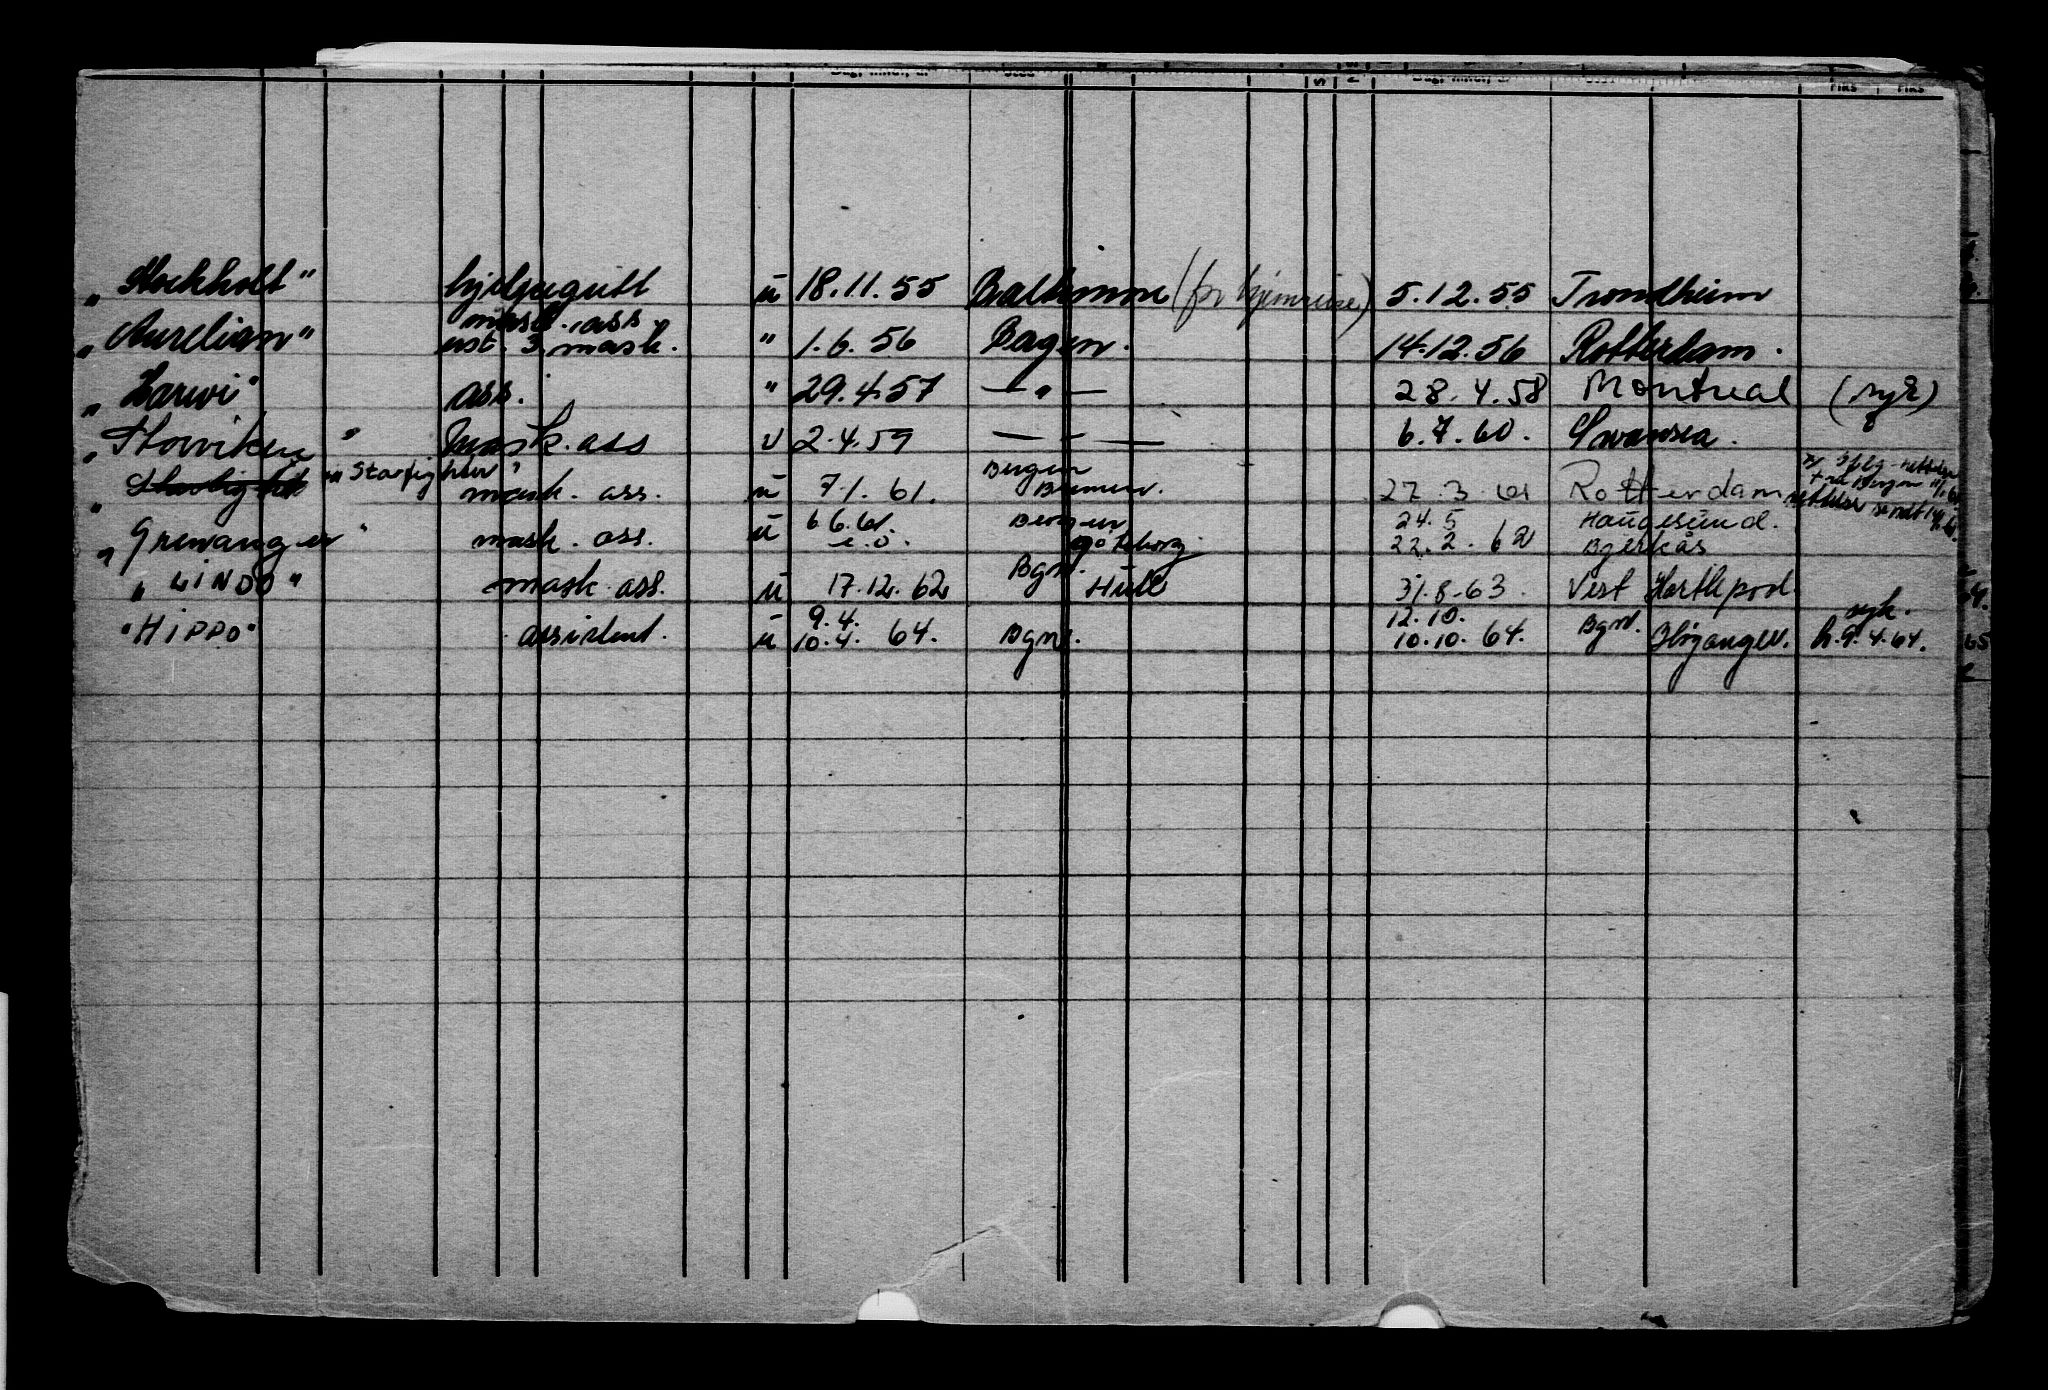 "Stockholt" hjelpegutt u 18.11.55 Baltimore (for hjemreise) 5.12.55 Trondheim
mask. ass.
"Aurelian" ust. 3. mask. " 1.6.56 Bergen. 14.12.56 Rotterdam.
"Harwi" ass. " 29.4.57 — " — 28.4.58 Montreal
"Storviken" mask. ass u 2.4.59 — " — 6.7.60. Swansea.
Bergen
" " Starfighter" mask. ass. u 7.1.61. Bremen. 27.3.61 Rotterdam
6.6.61. Bergen 24.5 Haugesund.
"Grenanger" mask. ass. u Göteborg 22.2.62 Bjerkås
Bgn.
"LINDO" mask. ass. u 17.12.62 Hull 31.8.63. Vest Hartlepool
9.4. 12.10. syk.
"HIPPO" assistent. u 10.4.64. Bgn. 10.10.64. Bgn. Høyanger. h.9.4.64.